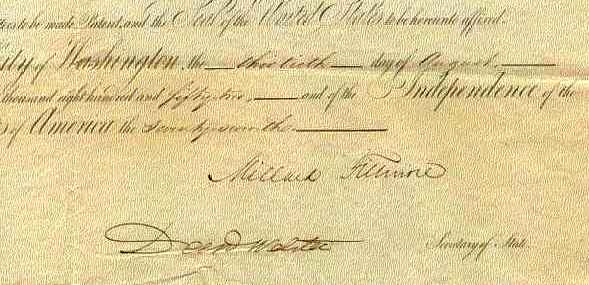 ters to be made Patent, and the Seal of the United States to be hereunto affixed.
ity of Washington, the thirtieth day of August,
thousand eight hundred and fifty two, and of the Independence of the
s of America the Seventy seventh.
Millard Fillmore
Webster Secretary of State.